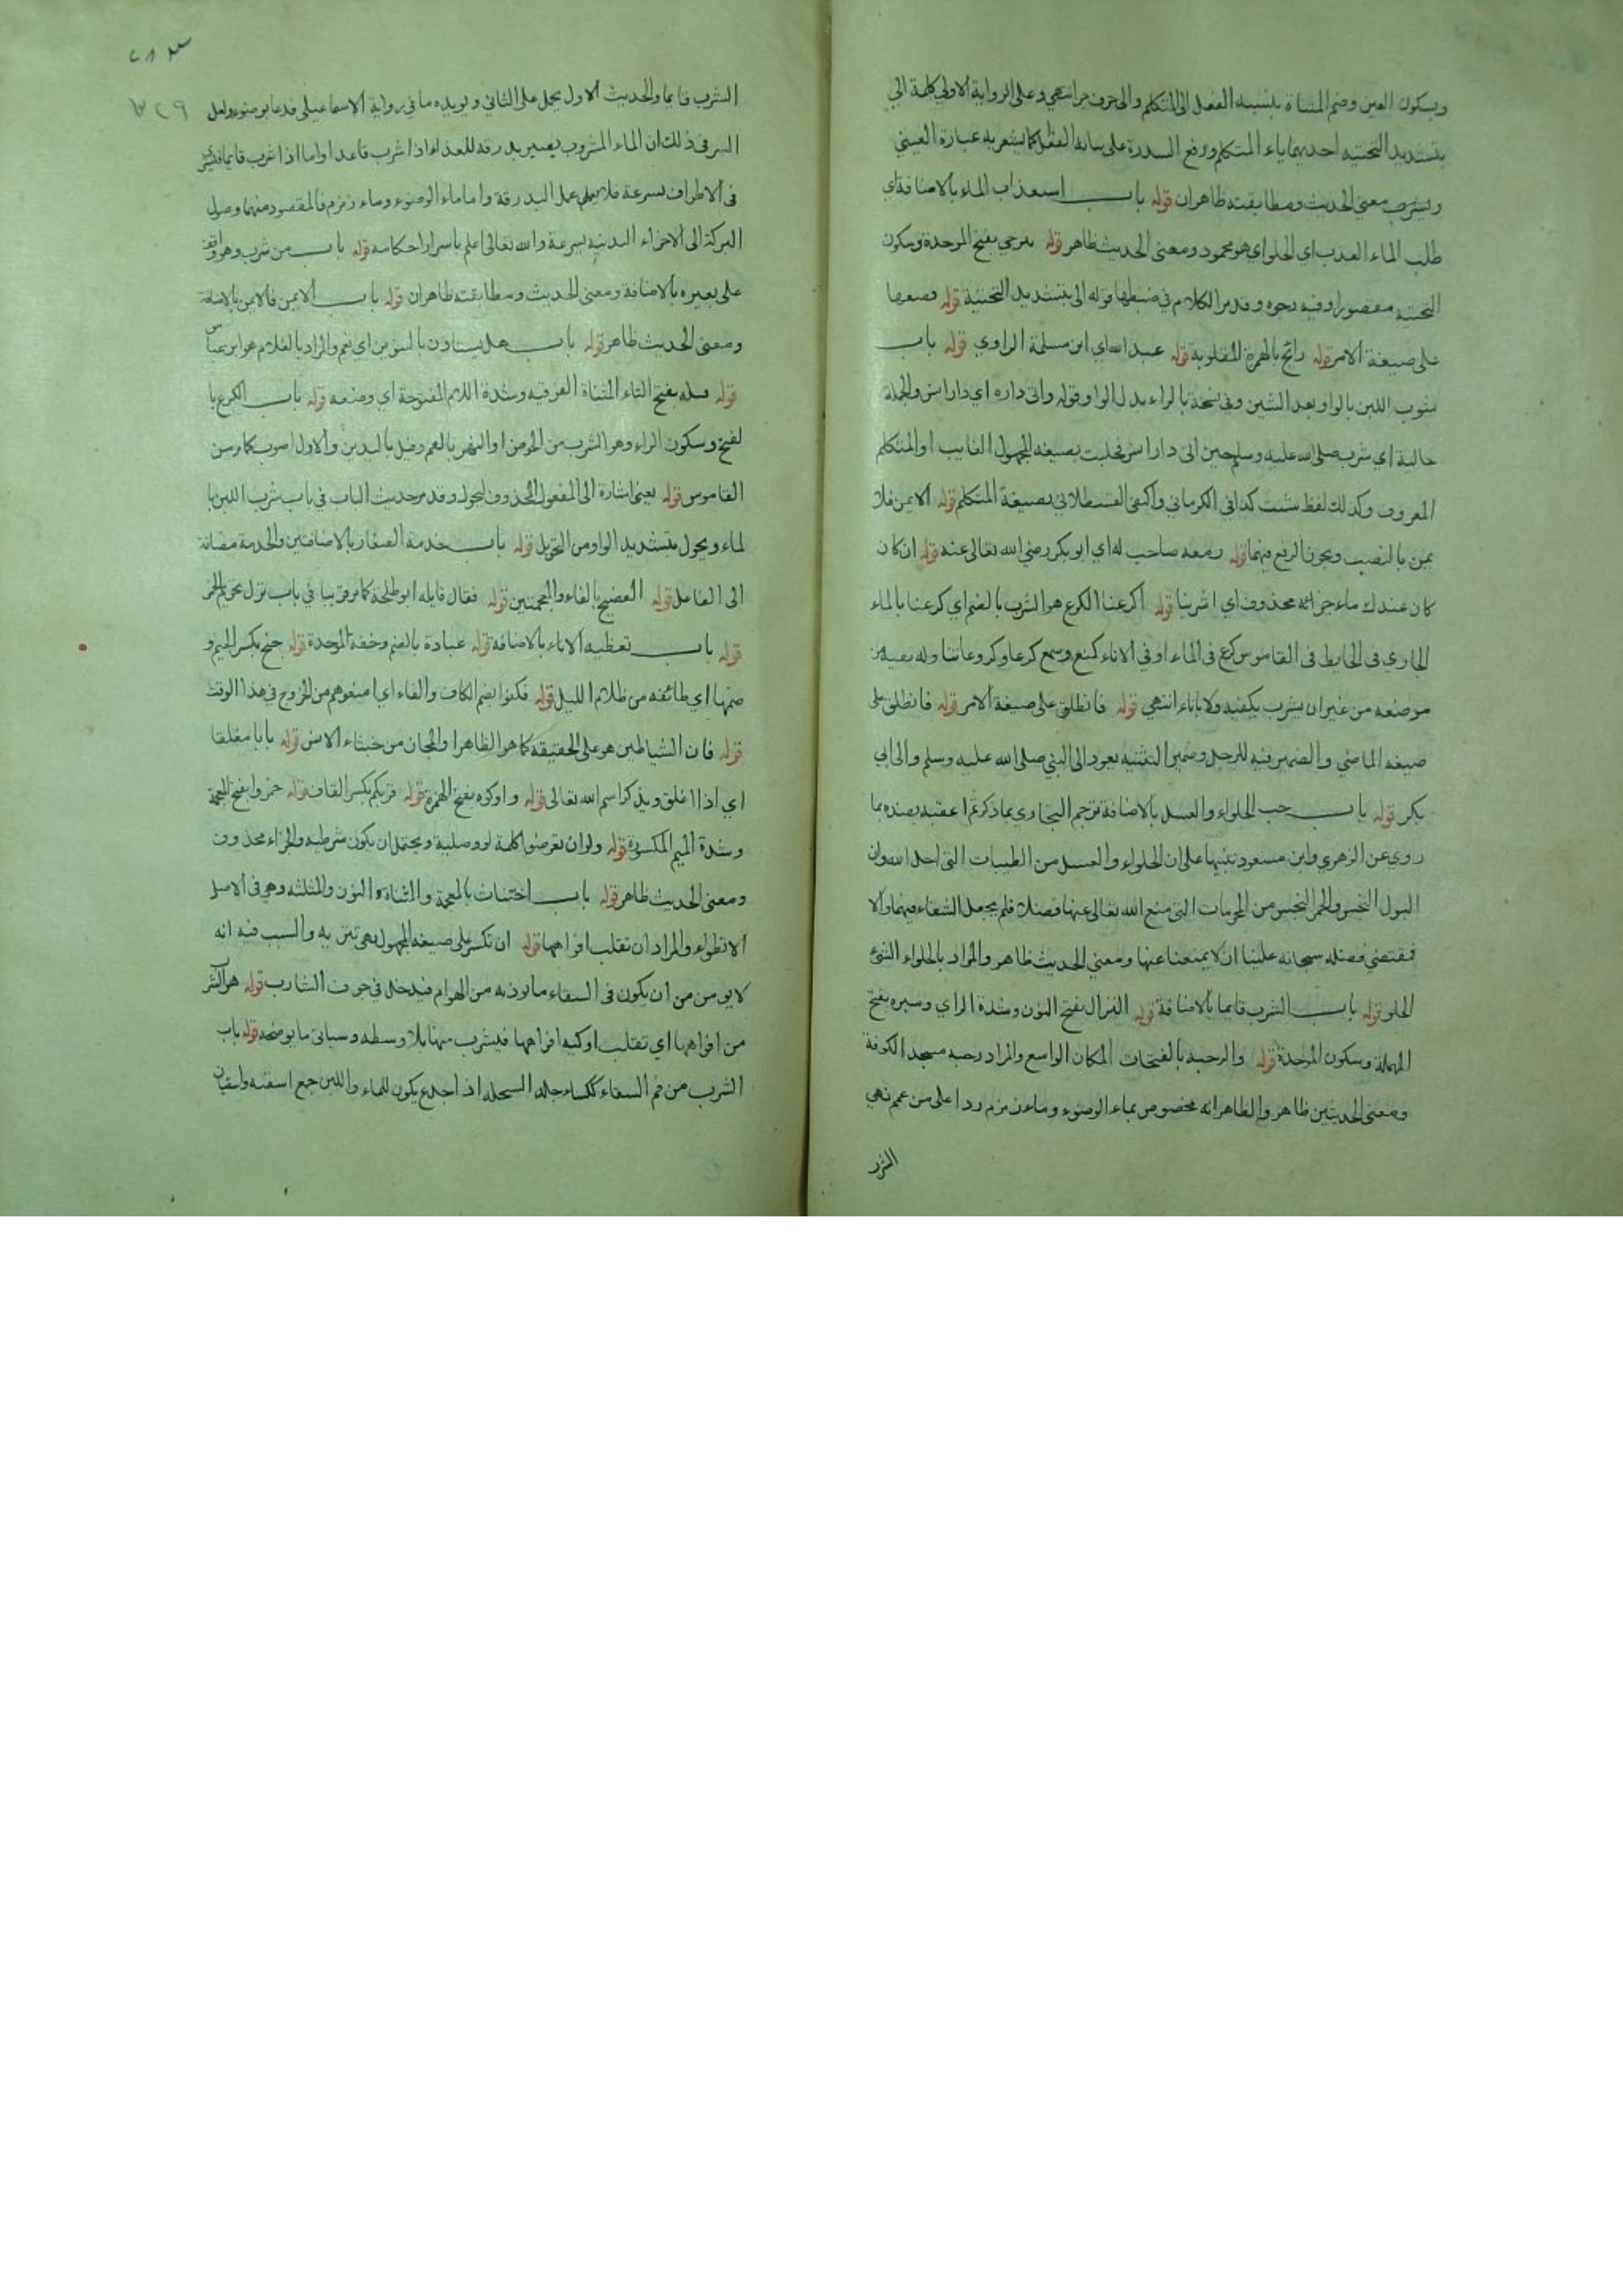 وبسكون العين وضم المثناة بنسبة الفعل الى المتكلم والى حرف جر انتهى وعلى الرواية الاولى كلمة الى
بتشديد التحتية احديهما ياء المتكلم ورفع السدرة على نيابة الفعل كما يشعر به عبارة العيني
ومعنى الحديث ومطابقته ظاهران قوله باب استعذاب الماء بالاضافة اي
طلب الماء العذب اي الحلو اي هو محمود ومعنى الحديث ظاهر قوله بيرحى بفتح الموحدة وسكون
التحتية مقصورا وفيه وجوه وقد مر الكلام في ضبطها قوله الى بتشديد التحتية قوله وضعها
على صيغة الامر قوله رائح بالهمزة المقلوبة قوله عبد الله اي ابن مسلمة الراوي قوله باب
شوب اللبن بالواو بعد الشين وفي نسخة بالراء بدل الواو قوله واتى داره اي دار انس والجملة
حالية اي شرب صلى الله عليه وسلم حين اتى دار انس فحلبت بصيغة المجهول الغايب او المتكلم
المعروف وكذلك لفظ شبت كذا في الكرماني واكتفى القسطلاني بصيغة المتكلم قوله الايمن فالا
يمن بالنصب ويجوز الرفع فيهما قوله ومعه صاحب له اي ابو بكر رضي الله تعالى عنه قوله ان كان
كان عندك ماء جزائه محذوف اي اشربنا قوله اكرعنا الكرع هو الشرب بالفم اي كرعنا بالماء
الجاري في الحايط في القاموس كرع في الماء او في الاناء كمنع وسمع كرعا وكروعا تناوله بفيه من
موضعه من غير ان يشرب بكفيه ولا باناء انتهى قوله فانطلق على صيغة الامر قوله فانطلق على
صيغة الماضي والضمير فيه للرجل وضمير التثنية يعود الى النبي صلى الله عليه وسلم والى ابي
بكر قوله باب حب الحلواء والعسل بالاضافة ترجم البخاري بما ذكر ثم اعقبه بضده بما
روي عن الزهري وابن مسعود تنبيها على ان الحلواء والعسل من الطيبات التي احل الله وان
البول النجس والخمر النجس من المحرمات التي منع الله تعالى عنها فضلا فلم يجعل الشفاء فيهما والا
فمقتضى فضله سبحانه علينا ان لا يمنعنا عنها ومعنى الحديث ظاهر والمراد بالحلواء الشئ
الحلو قوله باب الشرب قايما بالاضافة قوله النزال بفتح النون وشدة الزاي وسبره بفتح
المهملة وسكون الموحدة قوله والرحبة بالفتحات المكان الواسع والمراد رحبة مسجد الكوفة
ومعنى الحديثين ظاهر والظاهر انه مخصوص بماء الوضوء وماء زمزم ردا على من عمم نهي
الشرب
الشرب قايما والحديث الاول يحمل على الثاني ويويده ما في رواية الاسماعيلي فدعا بوضوء ولعل
السر في ذلك ان الماء المشروب يصير بدرقة للغذاء اذا شرب قاعدا واما اذا شرب قايما
في الاطراف بسرعة فلا يعمل عمل البدرقة واما ماء الوضوء وماء زمزم فالمقصود منهما وصول
البركة الى الاجزاء البدنية بسرعة والله تعالى اعلم باسرار احكامه قوله باب من شرب وهو واقف
على بعيره بالاضافة ومعنى الحديث ومطابقته ظاهران قوله باب الايمن فالايمن بالاضافة
ومعنى الحديث ظاهر قوله باب هل يستاذن بالتنوين اي نعم والمراد بالغلام هو ابن عباس
قوله فتله بفتح التاء المثناة الفوقية وشدة اللام المفتوحة اي وضعه قوله باب الكرع با
لفتح وسكون الراء وهو الشرب من الحوض او النهر بالفم وقيل باليدين والاول اصوب كما مر من
القاموس قوله يعني اشارة الى المفعول المحذوف ليحول وقد مر حديث الباب في باب شرب اللبن با
لماء ويحول بتشديد الواو من التحويل قوله باب خدمة الصغار بالاضافتين والخدمة مضافة
الى الفاعل قوله الفضيخ بالفاء والمعجمتين قوله فقال قايله ابو طلحة كما مر قريبا في باب نزل تحريم الخمر
قوله باب تغطية الاناء بالاضافة قوله عبادة بالضم وخفة الموحدة قوله جنح بكسر الجيم و
ضمها اي طائفة من ظلام الليل قوله فكفوا بضم الكاف والفاء اي امنعوهم من الخروج في هذا الوقت
قوله فان الشياطين هو على الحقيقة كما هو الظاهر او الجان من خبثاء الانس قوله بابا مغلقا
اي اذا اغلق ويذكر اسم الله تعالى قوله واوكوه بفتح الهمزة قوله قربكم بكسر القاف قوله خمروا بفتح المعجمة
وشدة الميم المكسورة قوله ولو ان تعرضوا كلمة لو وصلية ويحتمل ان يكون شرطية والجزاء محذوف
ومعنى الحديث ظاهر قوله باب اختناث بالمعجمة والمثناة والنون والمثلثة وهو في الاصل
الانطواء والمراد ان تقلب افواهها قوله ان تكسر على صيغة المجهول والسبب فيه انه
لا يومن من ان يكون في السقاء ما يوذيه من الهوام فيدخل في جوف الشارب قوله هو الشر
من افواهها اي تقلب اوكية افواهها فيشرب منها بلا وسطه وسياتي ما يوضحه قوله باب
الشرب من فم السقاء ككساء جلد السخلة اذا اجذع يكون للماء واللبن جمع اسقية واسقيات